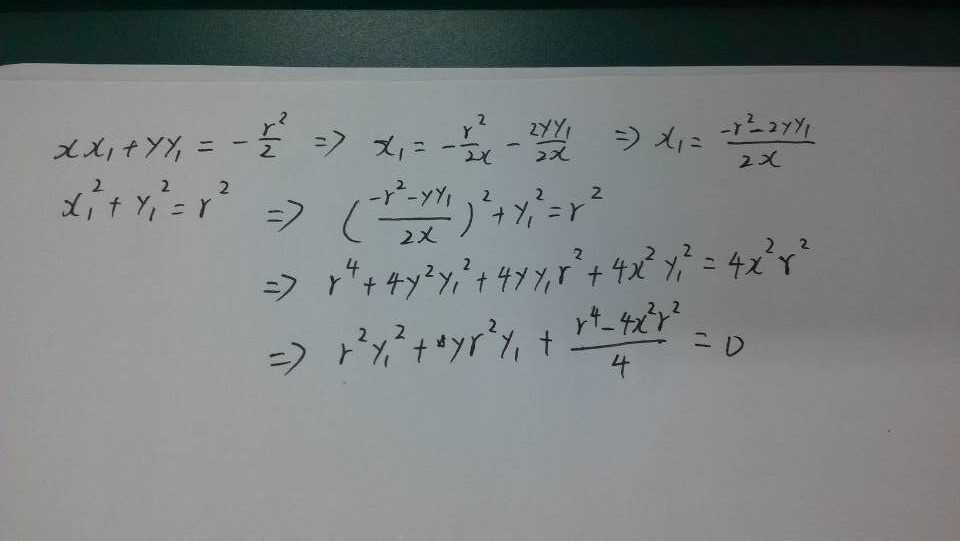 xx₁ + yy₁ = -r²/2 => x₁ = -r²/2x - 2yy₁/2x => x₁ = (-r² - 2yy₁)/2x
x₁² + y₁² = r² => ((-r² - yy₁)/2x)² + y₁² = r²
=> r⁴ + 4y²y₁² + 4yy₁r² + 4x²y₁² = 4x²r²
=> r²y₁² + yr²y₁ + (r⁴ - 4x²r²)/4 = 0